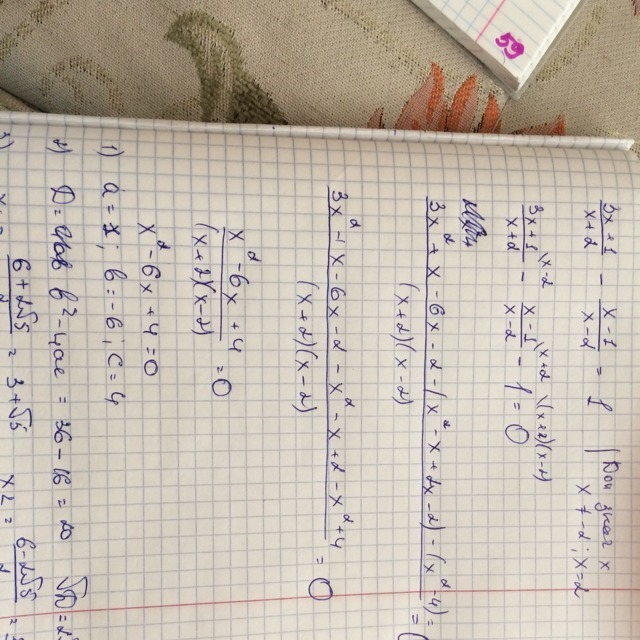 59
(3x+1)/(x+2) - (x-1)/(x-2) = 1 | Доп знач x
x ≠ -2; x=2
(3x+1)/(x+2) \x-2 - (x-1)/(x-2) \x+2 - 1 \(x+2)(x-2) = 0
(3x² + x - 6x - 2 - (x² - x + 2x - 2) - (x² - 4))/((x+2)(x-2)) =
(3x² + x - 6x - 2 - x² - x + 2 - x² + 4)/((x+2)(x-2)) = 0
(x² - 6x + 4)/((x+2)(x-2)) = 0
x² - 6x + 4 = 0
1) a = 1; b = -6; c = 4
2) D = b² - 4ac = 36 - 16 = 20 √D = 2
3) (6+2√5)/2 = 3+√5 x2 = (6-2√5)/2 =